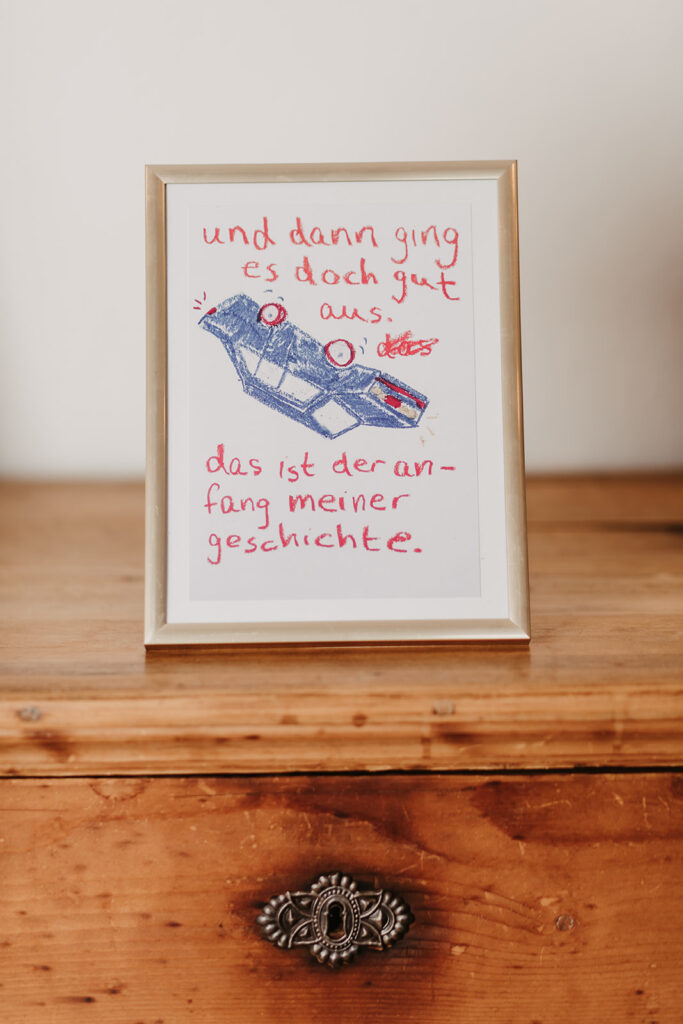 und dann ging
es doch gut
aus.
das ist der an-
fang meiner
geschichte.